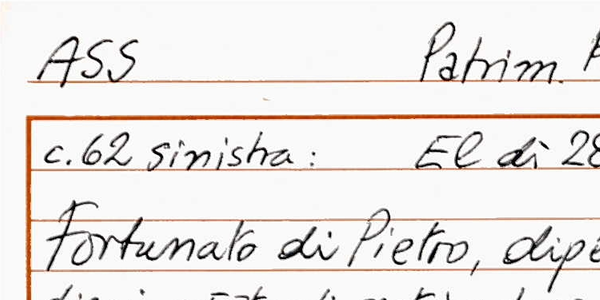 ASS Patrim.
c. 62 sinistra: El dì 28
Fortunato di Pietro, dipe